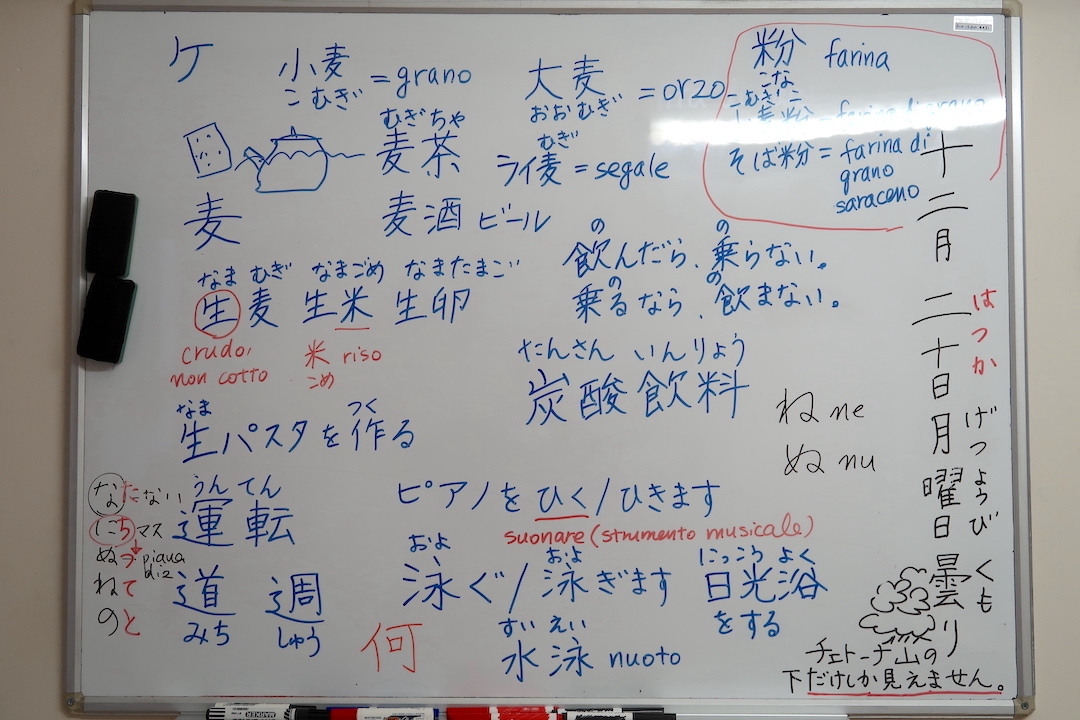 ケ
こむぎ
小麦 = grano
大麦 = orzo
おおむぎ
粉 farina
こな
こむぎこ
小麦粉 = farina di grano
そば粉 = farina di
grano
saraceno
むぎちゃ
麦茶
むぎ
ライ麦 = segale
麦
麦酒 ビール
の の
飲んだら、乗らない。
の の
乗るなら、飲まない。
なま むぎ なまごめ なまたまご
生麦 生米 生卵
crudo,
non cotto
米 riso
こめ
たんさん いんりょう
炭酸飲料
なま つく
生パスタを作る
ね ne
ぬ nu
うん てん
運転
ピアノをひく/ひきます
suonare (strumento musicale)
な た ない
に ち マス
ぬ
ね て
の と
道 週
みち しゅう
何
およ およ
泳ぐ/泳ぎます
にっこう よく
日光浴
をする
すい えい
水泳 nuoto
十二月二十日月曜日
はつか
げつようび
曇り
くも
チェトーナ山の
下だけしか見えません。